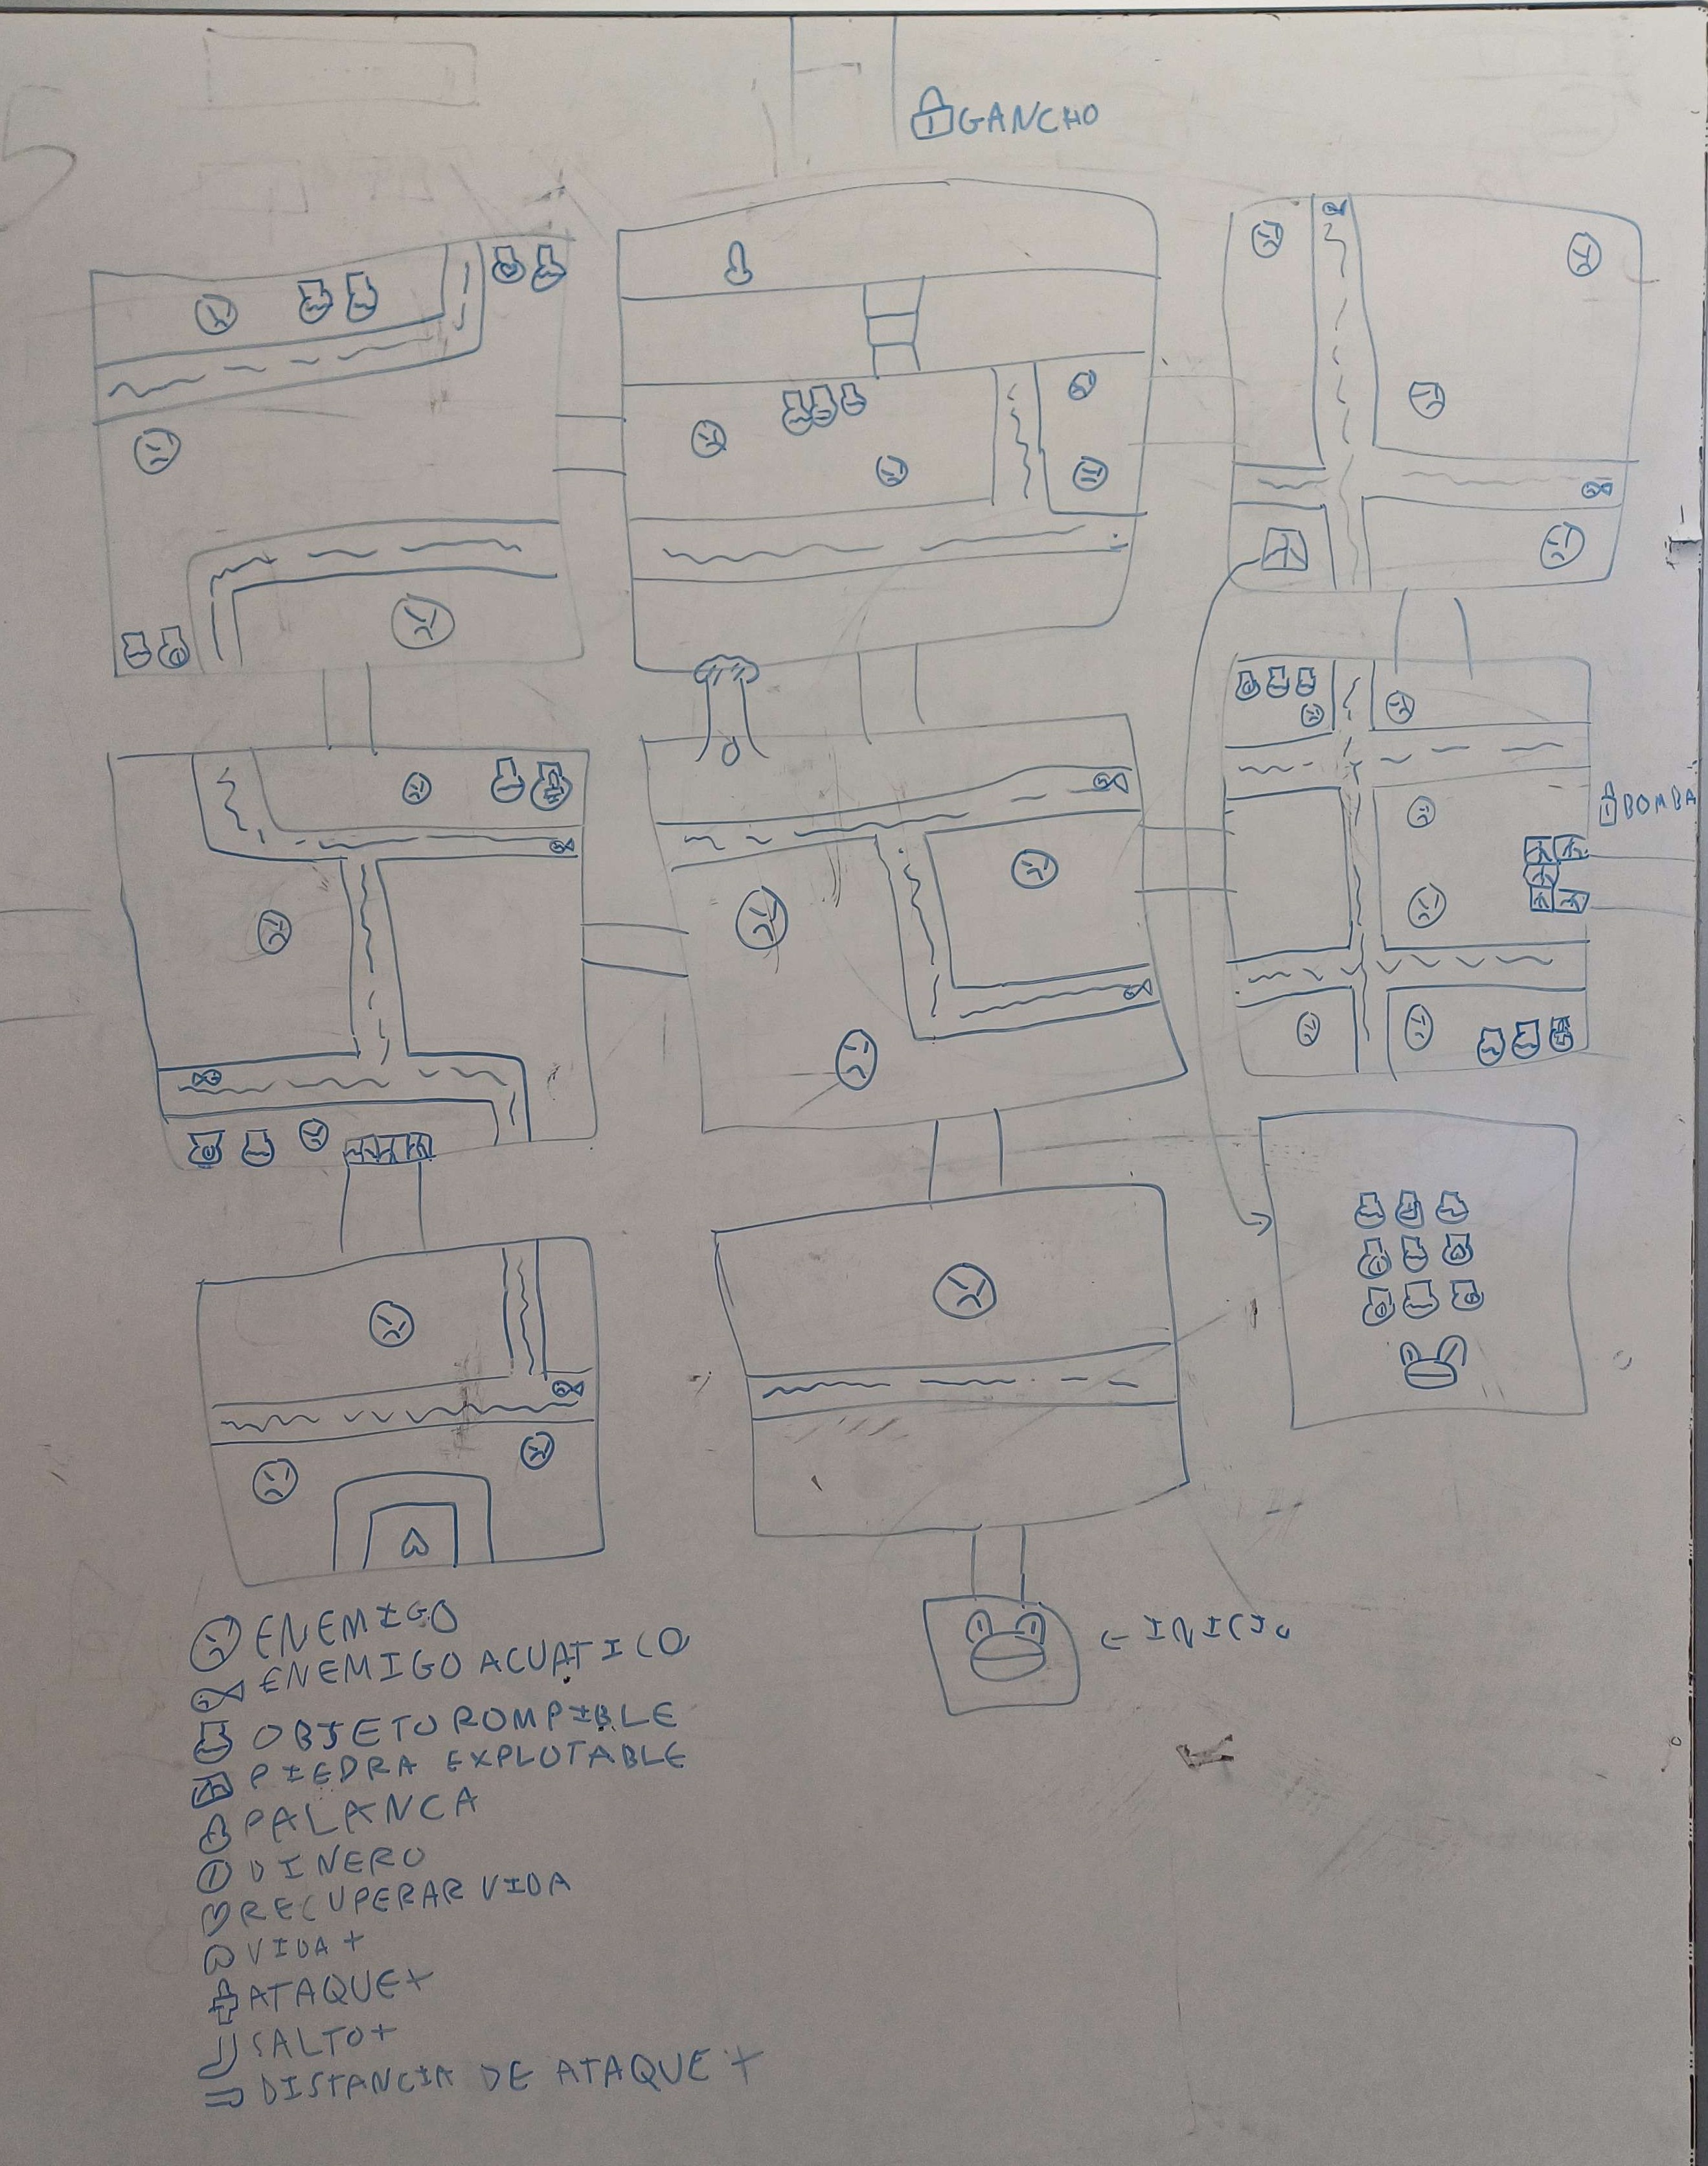 GANCHO
BOMBA
← INICIO
ENEMIGO
ENEMIGO ACUATICO
OBJETO ROMPIBLE
PIEDRA EXPLOTABLE
PALANCA
DINERO
RECUPERAR VIDA
VIDA +
ATAQUE+
SALTO+
DISTANCIA DE ATAQUE +